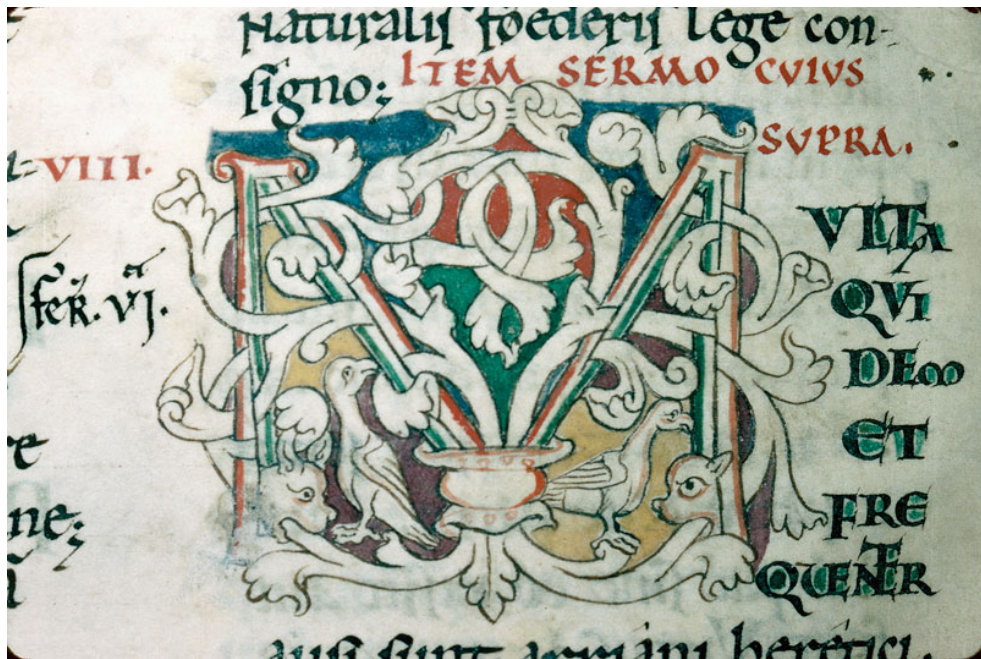 Naturalis foederis lege con-
signo; ITEM SERMO CVIVS
SVPRA.
VIII.
fer. VI.
M
VLTA
QVI
DEM
ET
FRE
QUENTER
ausi sunt arriani heretici.
ne;